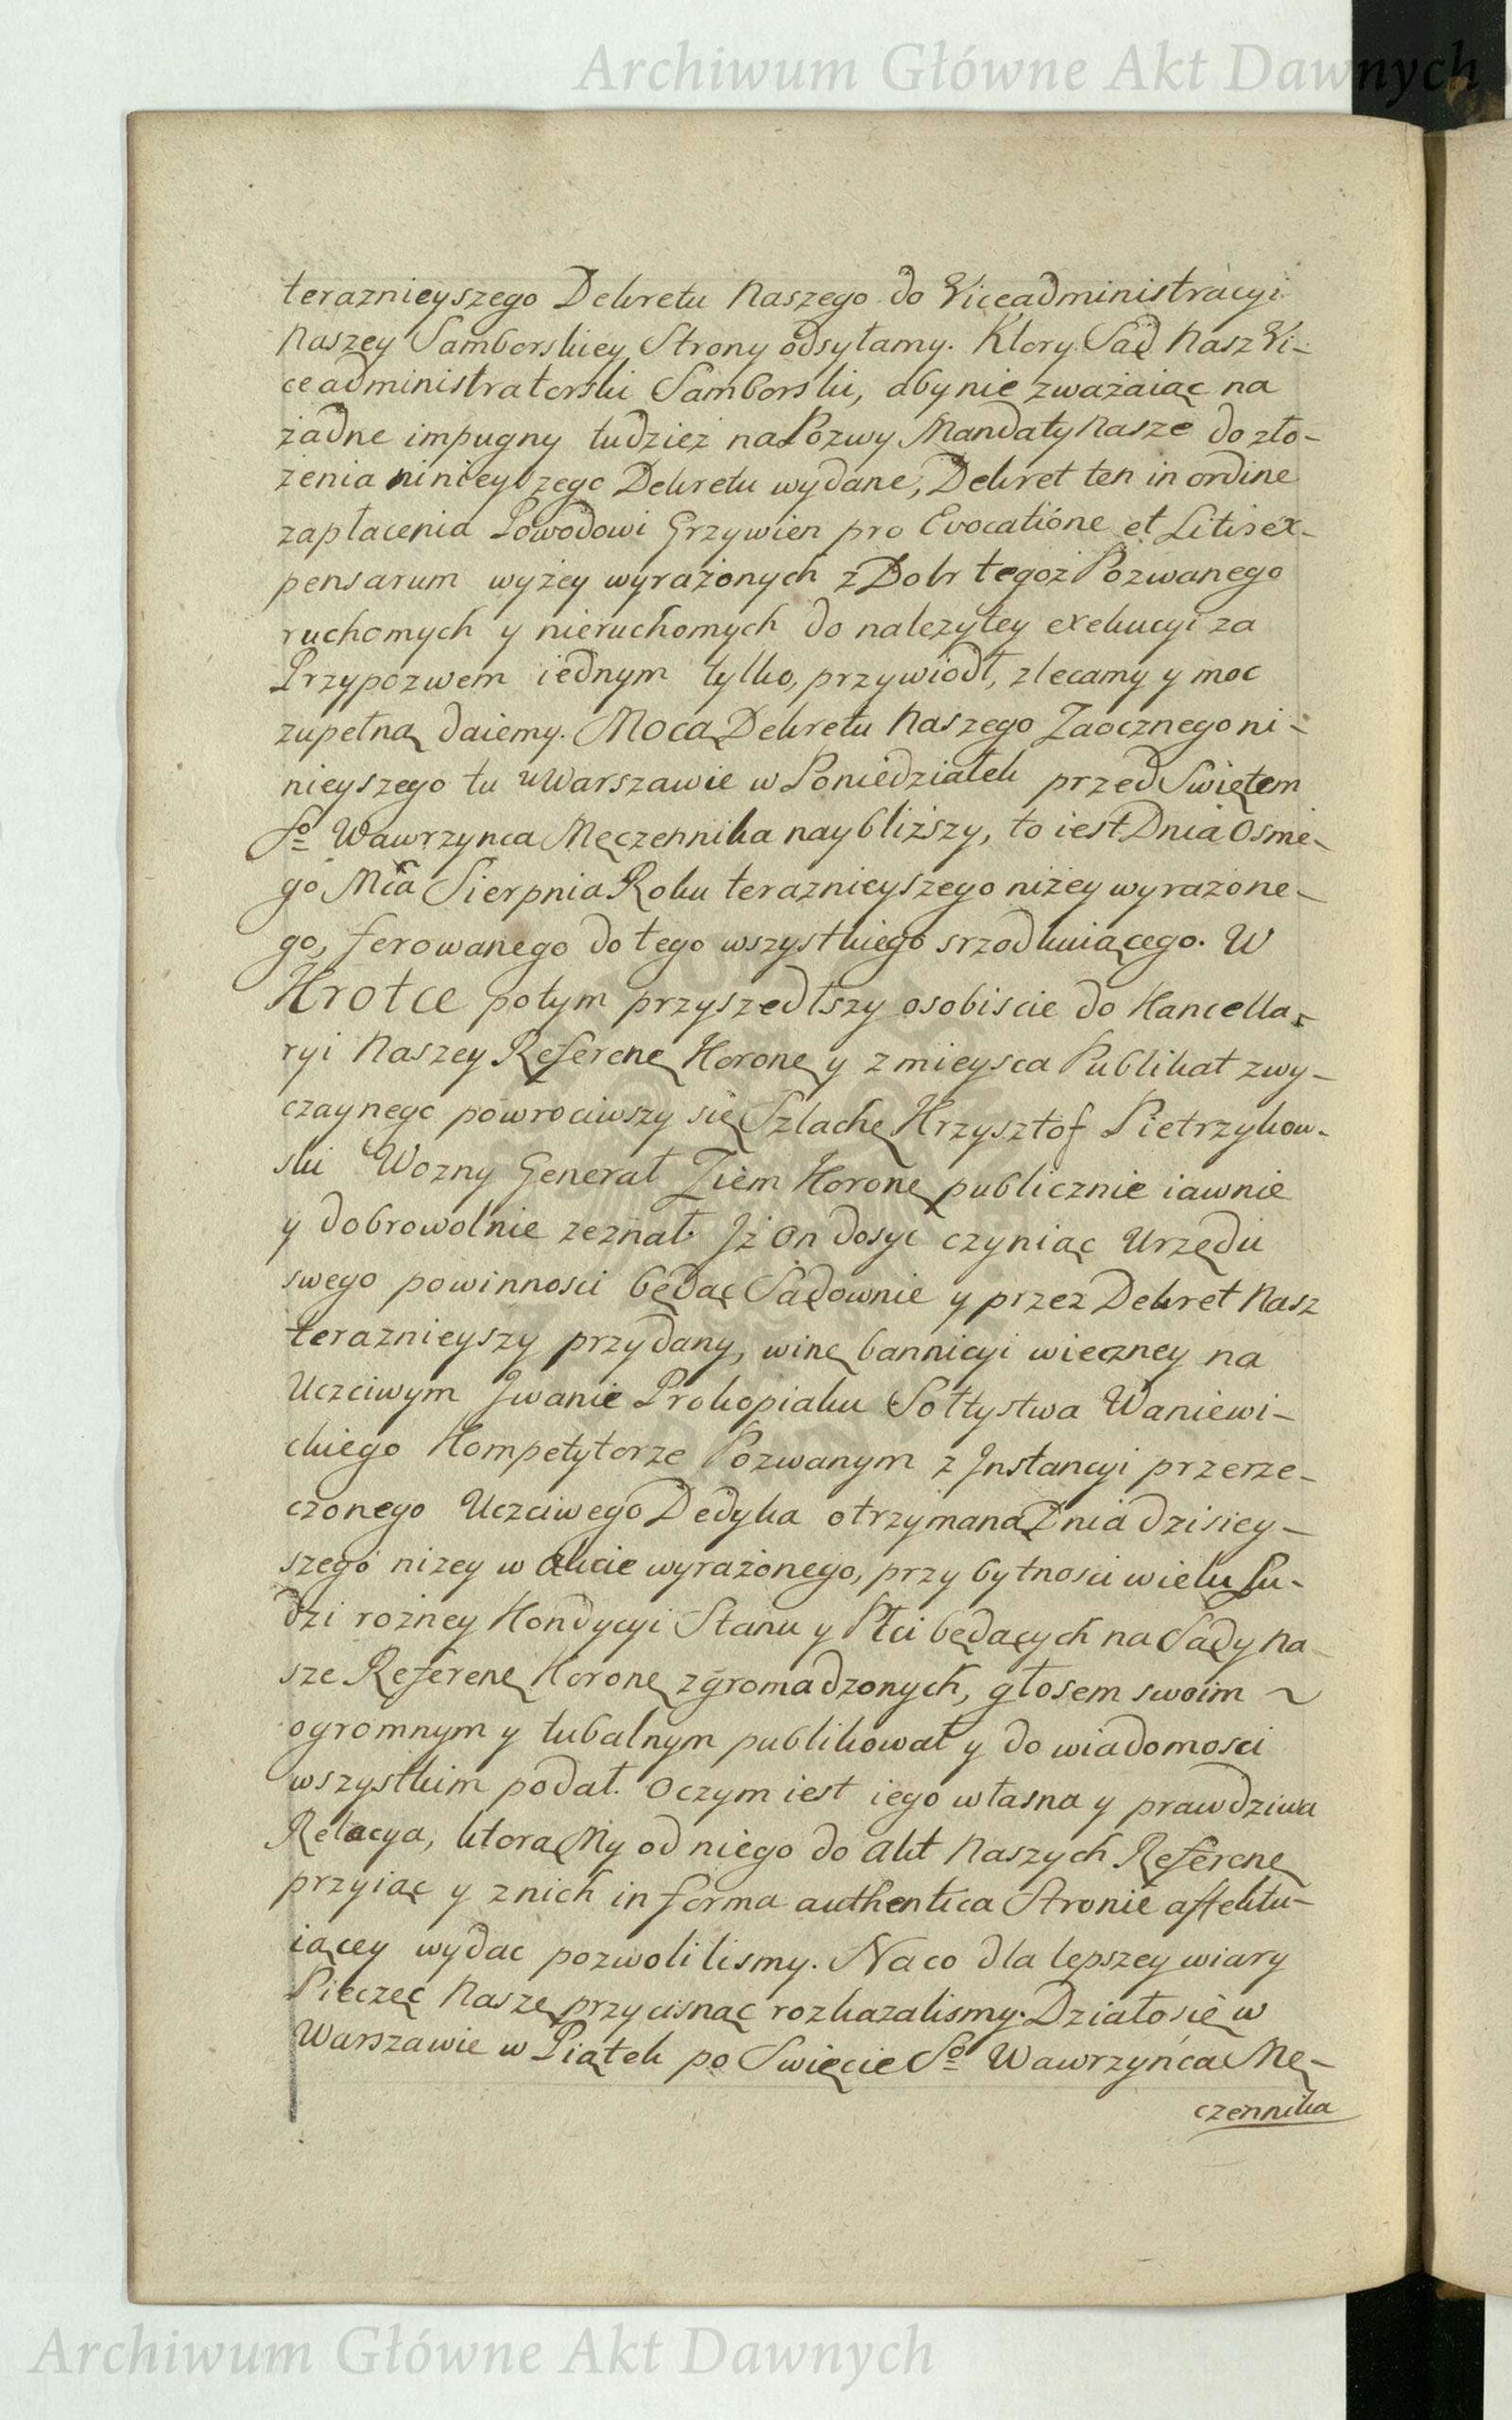 Archiwum Główne Akt Dawnych
teraznieyszego Dekretu Naszego do Viceadministracyi
Naszey Samborskiey Strony odsyłamy. Ktory Sąd Nasz Vi-
ceadministratorski Samborski, aby nie zważaiąc na
żadne impugny tudzież na Pozwy Mandaty Nasze do zło-
żenia ninieyszego Dekretu wydane, Dekret ten in ordine
zapłacenia Powodowi Grzywien pro Evocatióne et Litis ex-
pensarum wyżey wyrażonych z Dobr tegoż Pozwanego
ruchomych y nieruchomych do nalezytey exekucyi za
Przypozwem iednym tylko, przywiodł, zlecamy y moc
zupełną daiemy. Mocą Dekretu Naszego Zaocznego ni-
nieyszego tu w Warszawie w Poniedziałek przed Swiętem
So Wawrzynca Męczennika naybliższy, to iest Dnia Osme-
go Mca Sierpnia Roku teraznieyszego niżey wyrażone-
go, ferowanego do tego wszystkiego srzodkuiącego. W
Krotce potym przyszedłszy osobiscie do Kancella-
ryi Naszey Referenę Koronę y z mieysca Publikat zwy-
czaynego powrociwszy się Szlachę Krzysztof Pietrzykow-
ski Wozny Generał Ziem Koronę publicznie iawnie
y dobrowolnie zeznał. Jż On dosyc czyniąc Urzędu
swego powinnosci będąc Sądownie y przez Dekret Nasz
teraznieyszy przydany, winę bannicyi wieczney na
Uczciwym Jwanie Prokopiaku Sołtystwa Waniewi-
ckiego Kompetytorze Pozwanym z Jnstancyi przerze-
czonego Uczciwego Dedyka otrzymaną Dnia dzisiey-
szego niżey w Akcie wyrażonego, przy bytnosci wielu Lu-
dzi rożney Kondycyi Stanu y Płci będących na Sądy Na
sze Referenę Koronę zgromadzonych, głosem swoim ~
ogromnym y tubalnym publikował y do wiadomosci
wszystkim podał. Oczym iest iego własna y prawdziwa
Relacya, ktorą My od niego do Akt Naszych Referenę
przyiąc y znich in forma authentica Stronie affektu-
iącey wydac pozwolilismy. Na co dla lepszey wiary
Pieczęc Naszę przycisnąc rozkazalismy. Działo się w
Warszawie w Piątek po Swięcie So Wawrzyńca Mę-
czennika
Archiwum Główne Akt Dawnych